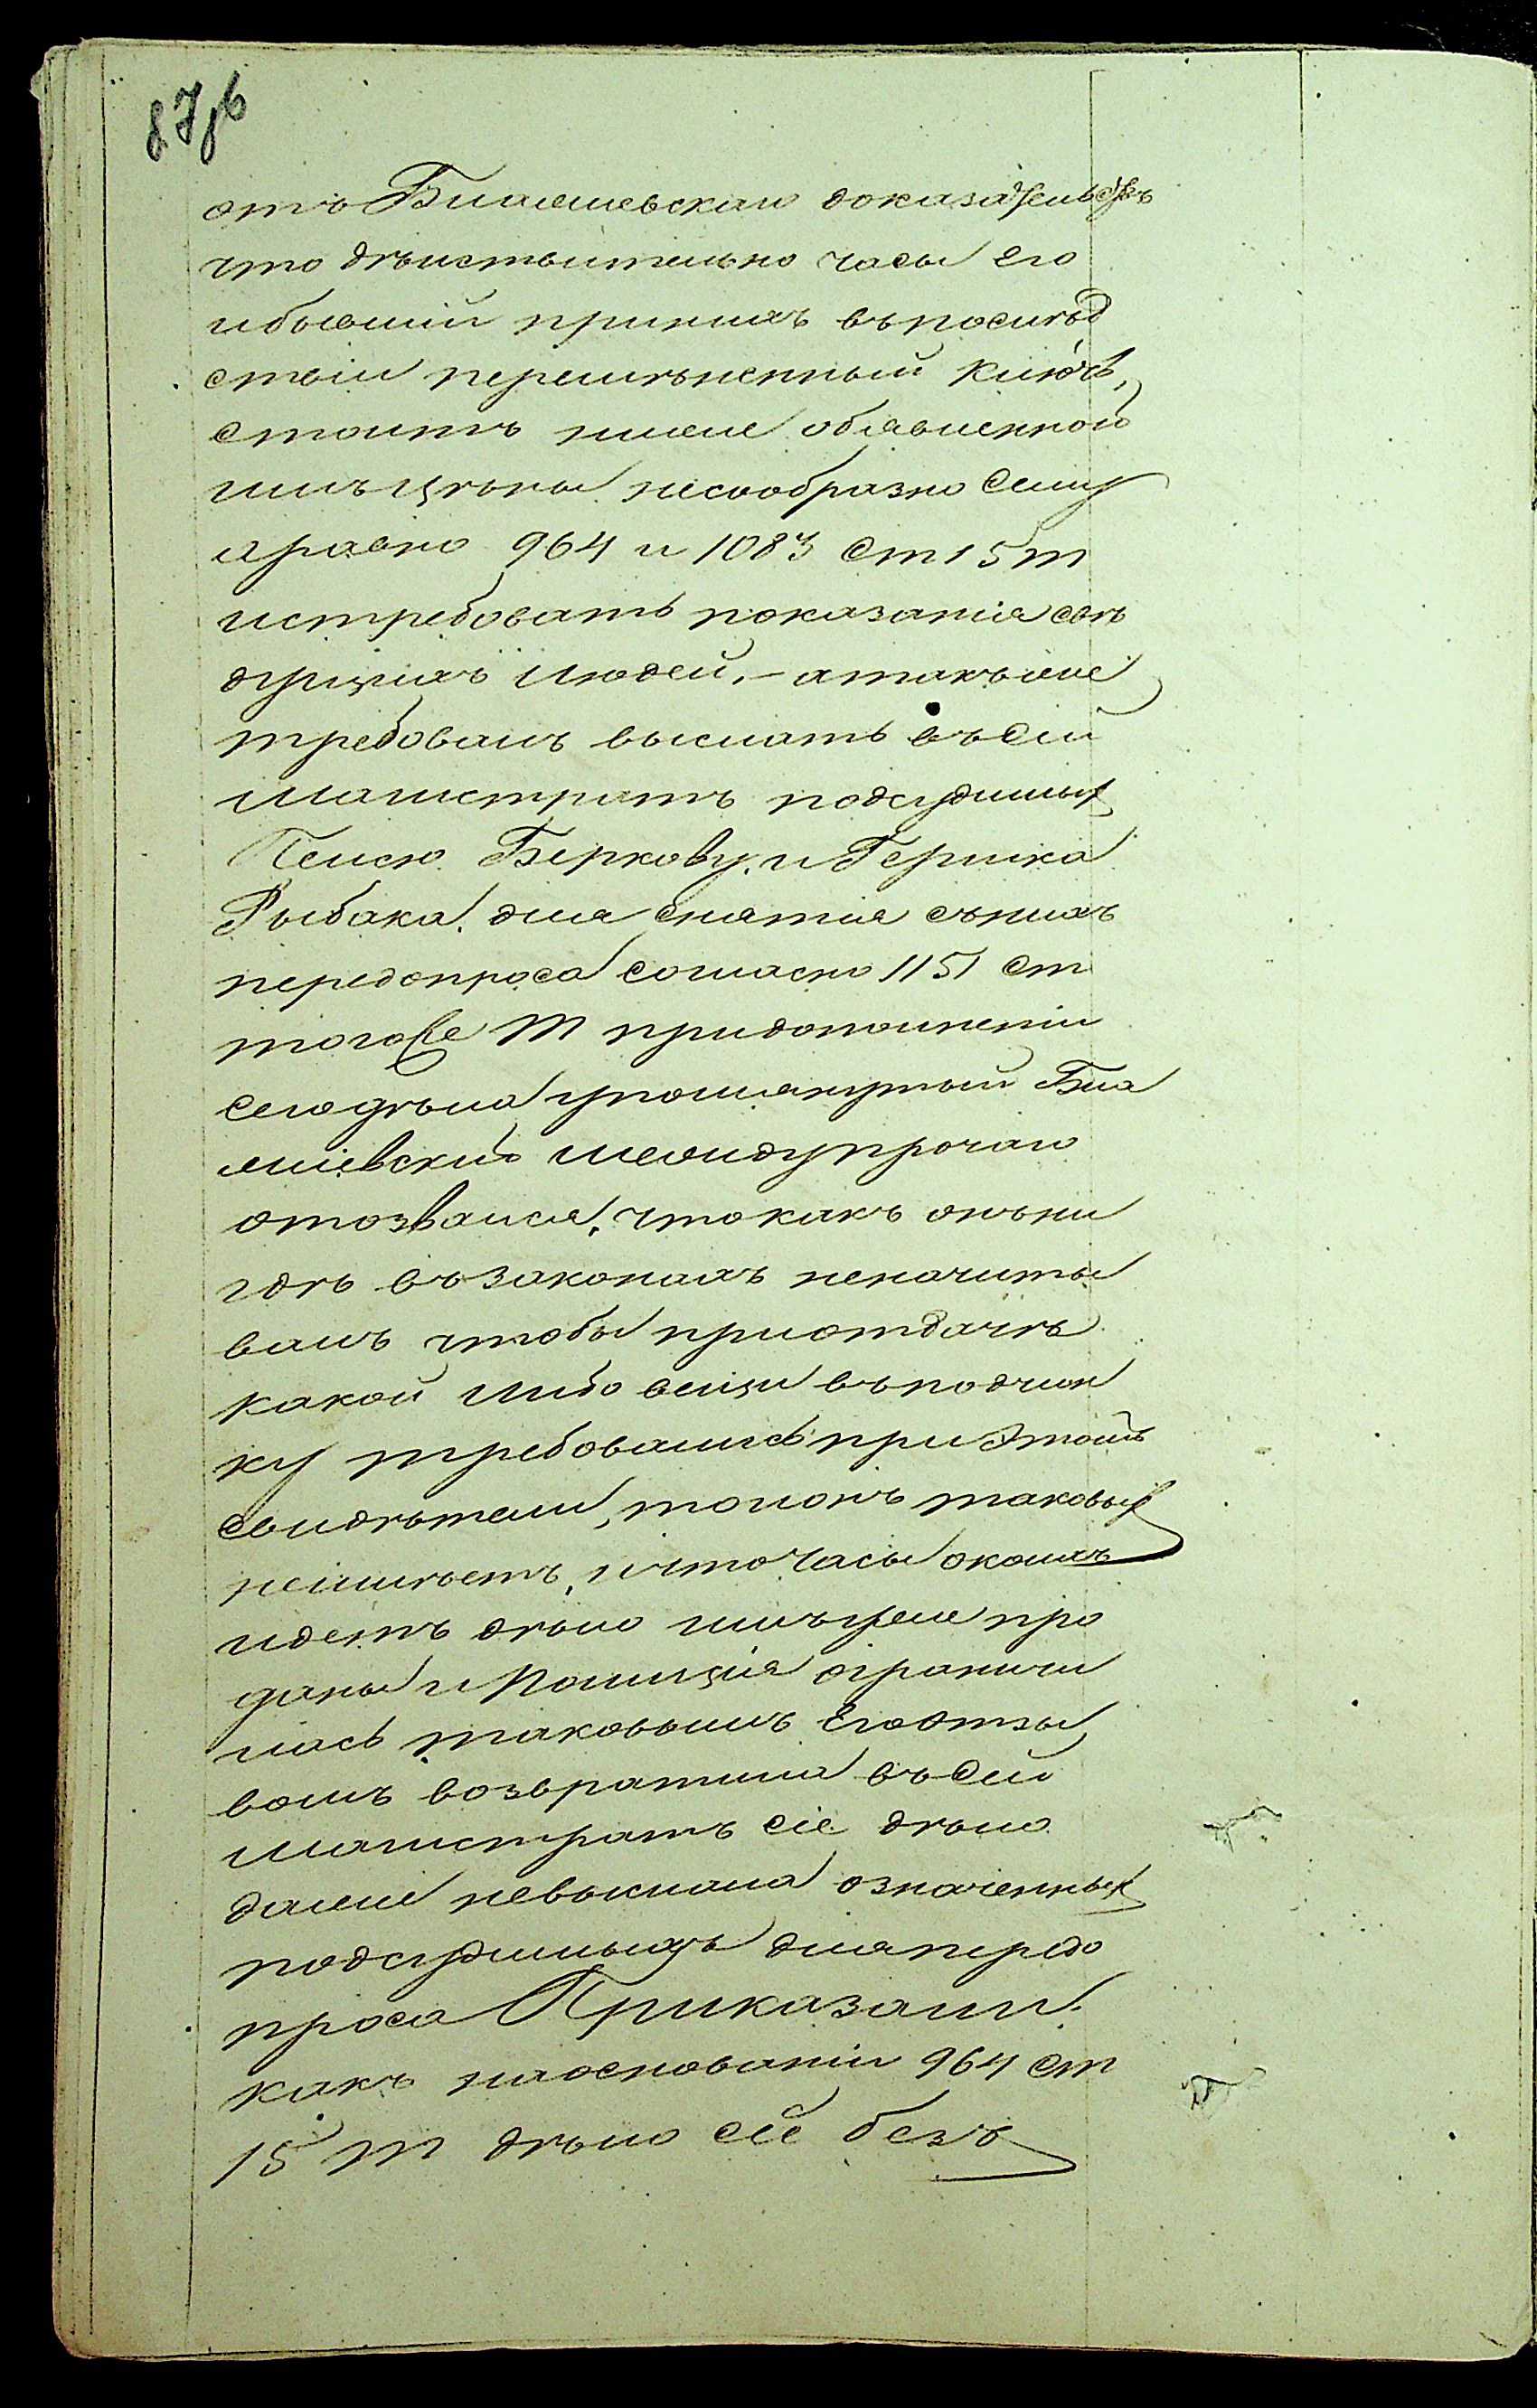 87об
отъ Билашевскаго доказательствъ
что дѣйствительно часы его
и бывшій принихъ въпослѣд
ствіи перемѣненный ключъ,
стоитъ ниже объявленной
имъ цѣны несообразно сему
а равно 964 и 1083 ст 15 т
истребовать показанія свѣ
дущихъ людей. – а также
требовалъ выслать въ сей
Магистратъ подсудимых
Пейсю Беркову и Гершка
Рыбака для снятія съ нихъ
передопроса согласно 1151 ст
тогоже т придополненіи
сего дѣла упомянутый Била
шевскій между прочаго
отозвался, что какъ онъ ни
гдѣ въ законахъ неначиты
валъ чтобы приотдачѣ
какой либо вещи въ подчин
ку требовались при этомъ
свидѣтели, то и онъ таковых
неимѣетъ, и что часы о коихъ
идетъ дѣло имъ уже про
даны и Полиція ограничи
лась таковымъ его отзы
вомъ возвратила въ сей
Магистратъ сіе дѣло
даже невыслала означенных
подсудимыхъ для передо
проса Приказали:
какъ наоснованіи 964 ст
15 т дѣло сіе безъ